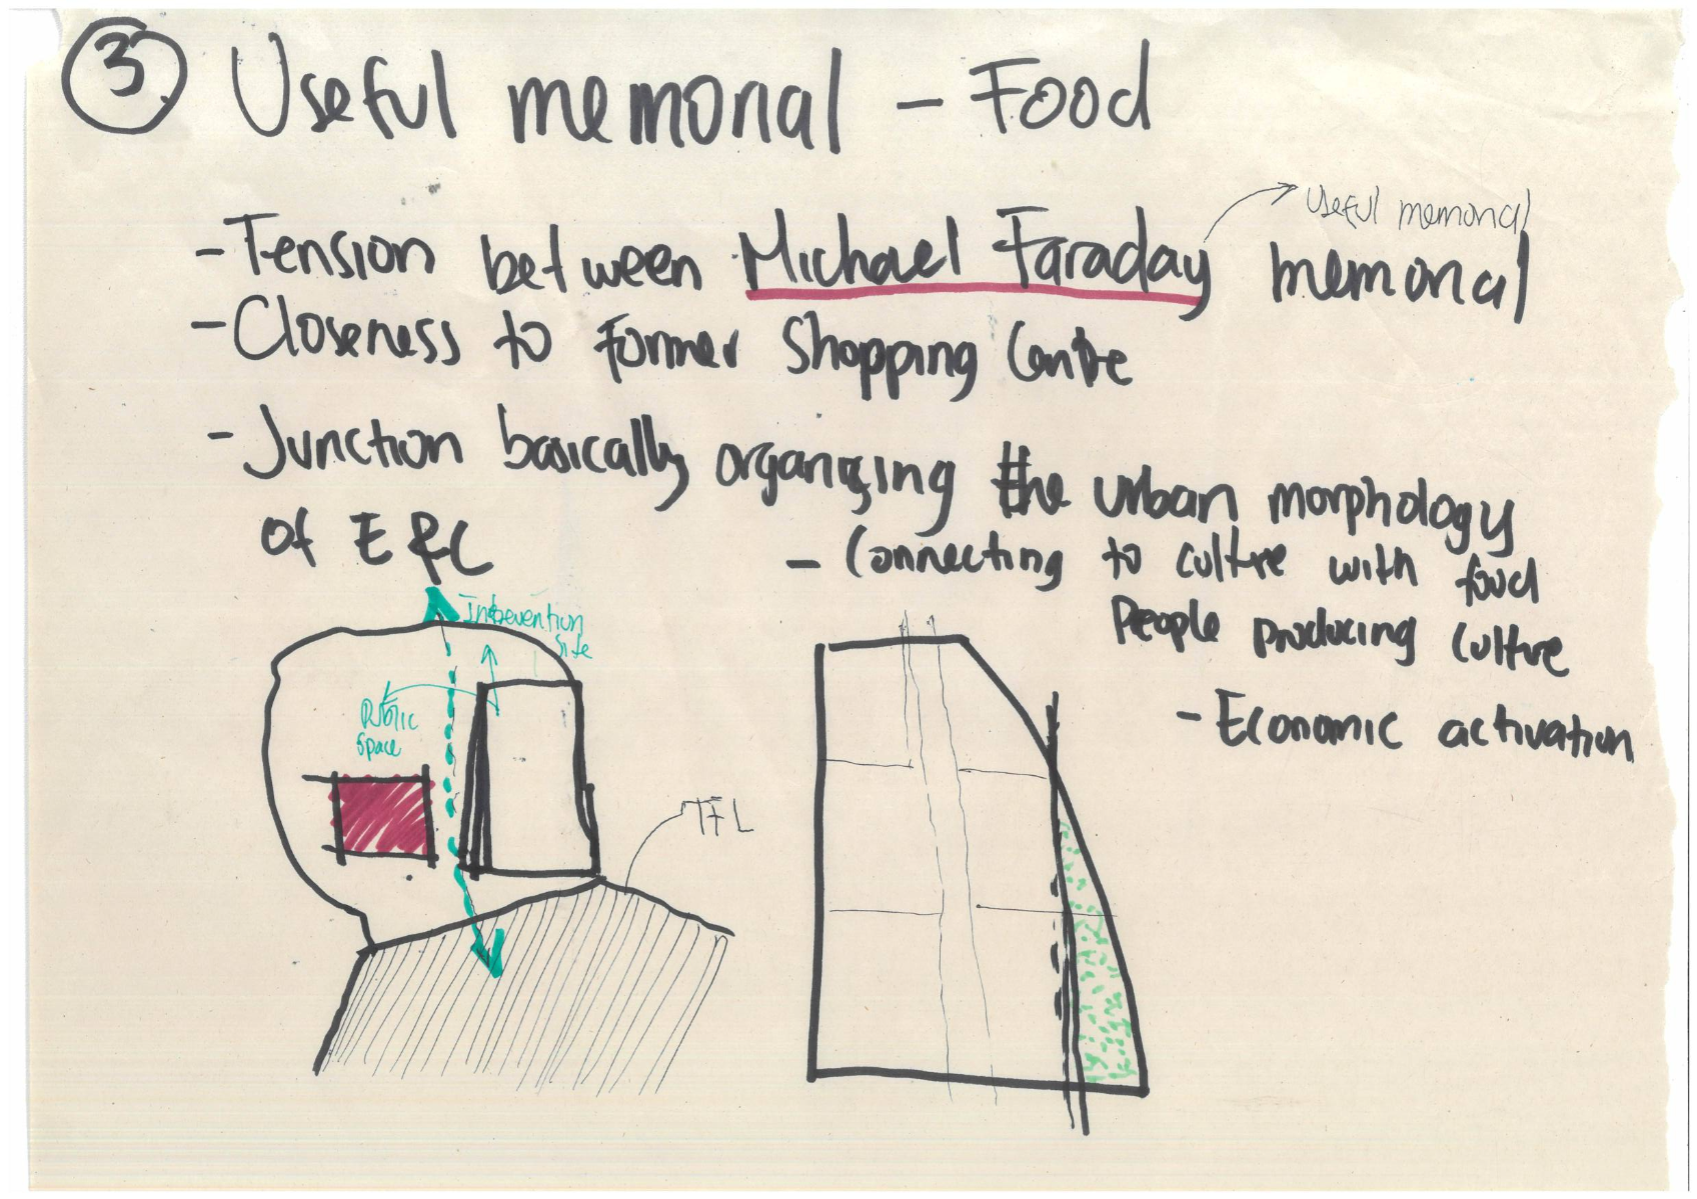 3 Useful memorial - Food
Useful memorial
- Tension between Michael Faraday memorial
- Closeness to former Shopping Centre
- Junction basically organizing the urban morphology
of E&C
- Connecting to culture with food
People producing culture
- Economic activation
Intervention
Site
Public
Space
TFL